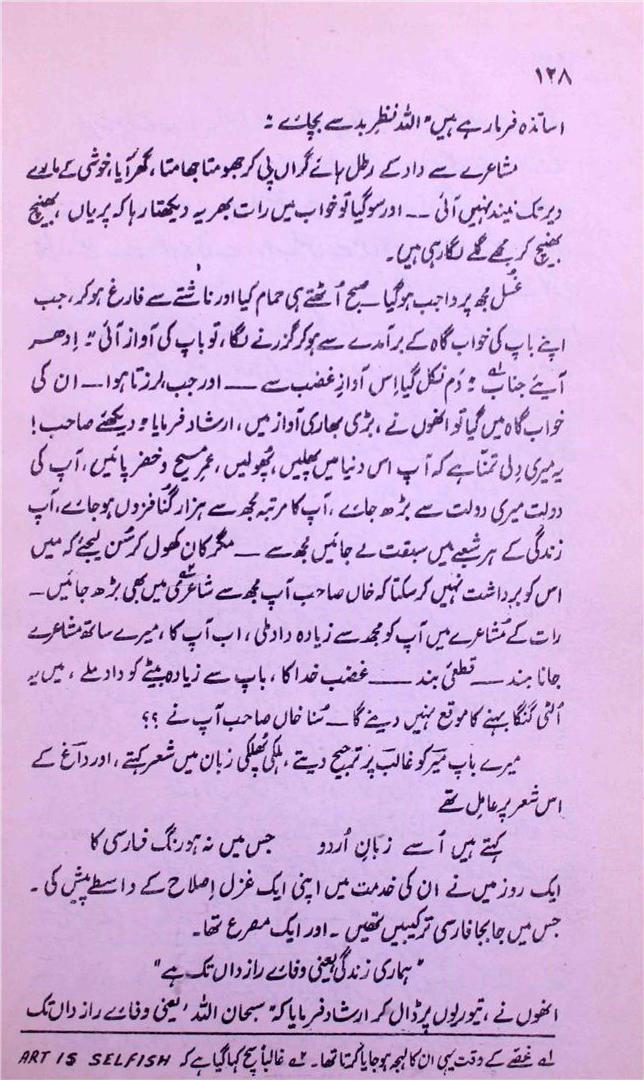 ۱۲۸
اساتذہ فرما رہے ہیں "اللہ نظرِ بد سے بچائے"۔
مشاعرے سے داد کے رطل ہائے گراں پی کر جھومتا جھامتا، گھر آیا، خوشی کے مارے
دیر تک نیند نہیں آئی ۔۔ اور سو گیا تو خواب میں رات بھر یہ دیکھتا رہا کہ پریاں، بھینچ
بھینچ کر مجھے گلے لگا رہی ہیں۔
غسل مجھ پر واجب ہو گیا ــ صبح اُٹھتے ہی حمام کیا اور ناشتے سے فارغ ہو کر، جب
اپنے باپ کی خواب گاہ کے برآمدے سے ہو کر گزرنے لگا، تو باپ کی آواز آئی "اِدھر
آیئے جناب"۱ دَم نکل گیا اِس آوازِ غضب سے ـــ اور جب، لرزتا ہوا ـــ ان کی
خواب گاہ میں گیا تو انھوں نے، بڑی بھاری آواز میں، ارشاد فرمایا "دیکھئے صاحب!
یہ میری دلی تمنّا ہے کہ آپ اس دنیا میں پھلیں، پھولیں، عمرِ مسیح و خضر پائیں، آپ کی
دولت میری دولت سے بڑھ جائے، آپ کا مرتبہ مجھ سے ہزار گنا فزوں ہو جائے، آپ
زندگی کے ہر شعبے میں سبقت لے جائیں مجھ سے ـــ مگر کان کھول کر سُن لیجئے کہ میں
اس کو برداشت نہیں کر سکتا کہ خاں صاحب آپ مجھ سے شاعری۲ میں بھی بڑھ جائیں۔
رات کے مُشاعرے میں آپ کو مجھ سے زیادہ داد ملی، اب آپ کا، میرے ساتھ مشاعرے
جانا بند ـــ قطعی بند ـــ غضب خدا کا، باپ سے زیادہ بیٹے کو داد ملے، میں یہ
اُلٹی گنگا بہنے کا موقع نہیں دینے گا ـــ سُنا خاں صاحب آپ نے؟؟
میرے باپ میر کو غالب پر ترجیح دیتے، ہلکی پھلکی زبان میں شعر کہتے، اور داغ کے
اس شعر پر عامل تھے
کہتے ہیں اُسے زبانِ اُردو جس میں نہ ہو رنگ فارسی کا
ایک روز میں نے ان کی خدمت میں اپنی ایک غزل اِصلاح کے واسطے پیش کی۔
جس میں جابجا فارسی ترکیبیں تھیں۔ اور ایک مصرع تھا۔
"ہماری زندگی یعنی وفائے رازداں تک ہے"
انھوں نے، تیوریوں پر ڈال کر ارشاد فرمایا کہ "سبحان اللہ، یعنی وفائے رازداں تک
۱ے غصّے کے وقت یہی ان کا لہجہ ہو جایا کرتا تھا۔ ۲ے غالباً سچ کہا گیا ہے کہ ART IS SELFISH